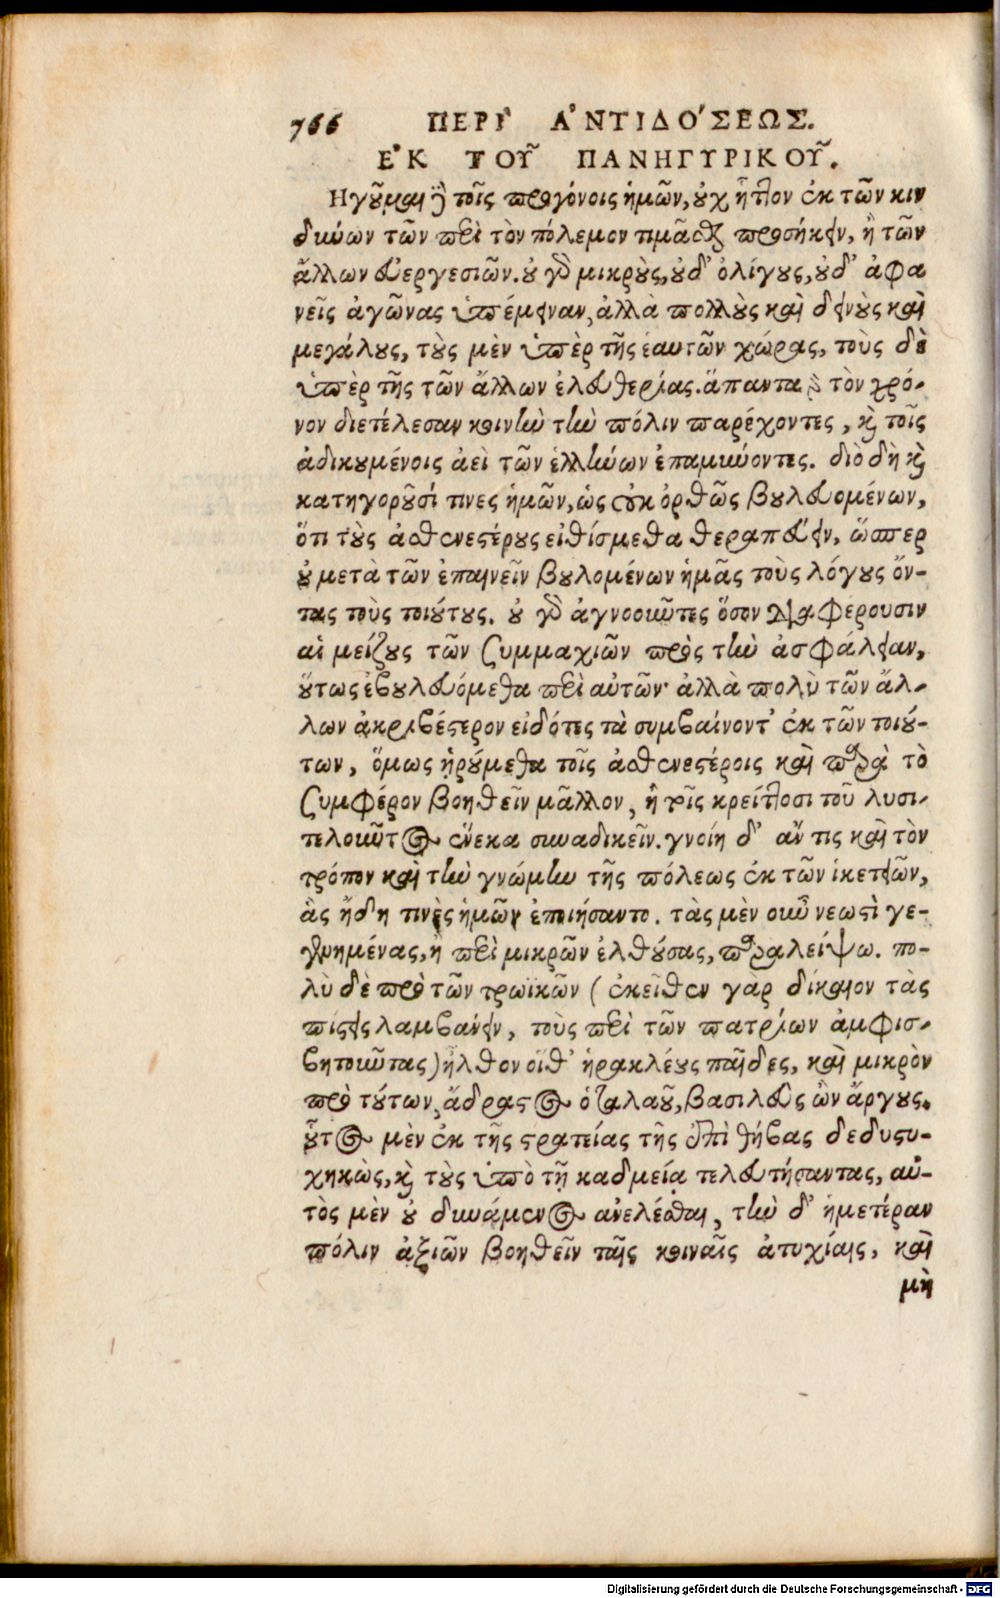 766 ΠΕΡῚ Ἀ̓ΝΤΙΔΌΣΕΩΣ.
Ἐ̓Κ ΤΟΥ͂ ΠΑΝΗΓΥΡΙΚΟΥ͂.
Ηγοῦμαι ϳ̀ τοῖς προγόνοις ἡμῶν, οὐχ ἧττον ἐκ τῶν κιν
δύνων τῶν περὶ τὸν πόλεμον τιμᾶσθαι προσήκειν, ἢ τῶν
ἄλλων εὐεργεσιῶν. οὐ γὸ μικροὺς, οὐδ᾽ ὀλίγους, οὐδ᾽ ἀφα
νεῖς ἀγῶνας ὑπέμειναν, ἀλλὰ πολλοὺς καὶ δεινοὺς καὶ
μεγάλους, τοὺς μὲν ὑπὲρ τῆς ἑαυτῶν χώρας, τοὺς δὲ
ὑπὲρ τῆς τῶν ἄλλων ἐλευθερίας. ἅπαντα δὲ τὸν χρό-
νον διετέλεσαν κοινὴν τὴν πόλιν παρέχοντες, καὶ τοῖς
ἀδικουμένοις ἀεὶ τῶν ἑλλήνων ἐπαμύνοντες. διὸ δὴ καὶ
κατηγοροῦσί τινες ἡμῶν, ὡς οὐκ ὀρθῶς βουλευομένων,
ὅτι τοὺς ἀσθενεστέρους εἰθίσμεθα θεραπεύειν, ὥσπερ
οὐ μετὰ τῶν ἐπαινεῖν βουλομένων ἡμᾶς τοὺς λόγους ὄν-
τας τοὺς τοιούτους. οὐ γὸ ἀγνοοῦντες ὅσον διαφέρουσιν
αἱ μείζους τῶν συμμαχιῶν πρὸς τὴν ἀσφάλειαν,
οὕτως ἐβουλευόμεθα περὶ αὐτῶν· ἀλλὰ πολὺ τῶν ἄλ-
λων ἀκριβέστερον εἰδότες τὰ συμβαίνοντ᾽ ἐκ τῶν τοιού-
των, ὅμως ᾑρούμεθα τοῖς ἀσθενεστέροις καὶ παρὰ τὸ
συμφέρον βοηθεῖν μᾶλλον, ἢ τοῖς κρείττοσι τοῦ λυσι-
τελοῦντος ἕνεκα συναδικεῖν. γνοίη δ᾽ ἄν τις καὶ τὸν
τρόπον καὶ τὴν γνώμην τῆς πόλεως ἐκ τῶν ἱκετειῶν,
ἃς ἤδη τινὲς ἡμῶν ἐποιήσαντο. τὰς μὲν οὖν νεωστὶ γε-
γενημένας, ἢ περὶ μικρῶν ἐλθούσας, παραλείψω. πο-
λὺ δὲ πρὸ τῶν τρωϊκῶν (ἐκεῖθεν γὰρ δίκαιον τὰς
πίστεις λαμβάνειν, τοὺς περὶ τῶν πατρίων ἀμφισ-
βητοῦντας) ἦλθον οἵθ᾽ ἡρακλέους παῖδες, καὶ μικρὸν
πρὸ τούτων, ἄδραστος ὁ ταλαοῦ, βασιλεὺς ὢν ἄργους.
οὗτος μὲν ἐκ τῆς στρατείας τῆς ἐπὶ θήβας δεδυστυ-
χηκὼς, καὶ τοὺς ὑπὸ τῇ καδμείᾳ τελευτήσαντας, αὐ-
τὸς μὲν οὐ δυνάμενος ἀνελέσθαι, τὴν δ᾽ ἡμετέραν
πόλιν ἀξιῶν βοηθεῖν ταῖς κοιναῖς ἀτυχίαις, καὶ
μὴ
Digitalisierung gefördert durch die Deutsche Forschungsgemeinschaft - DFG